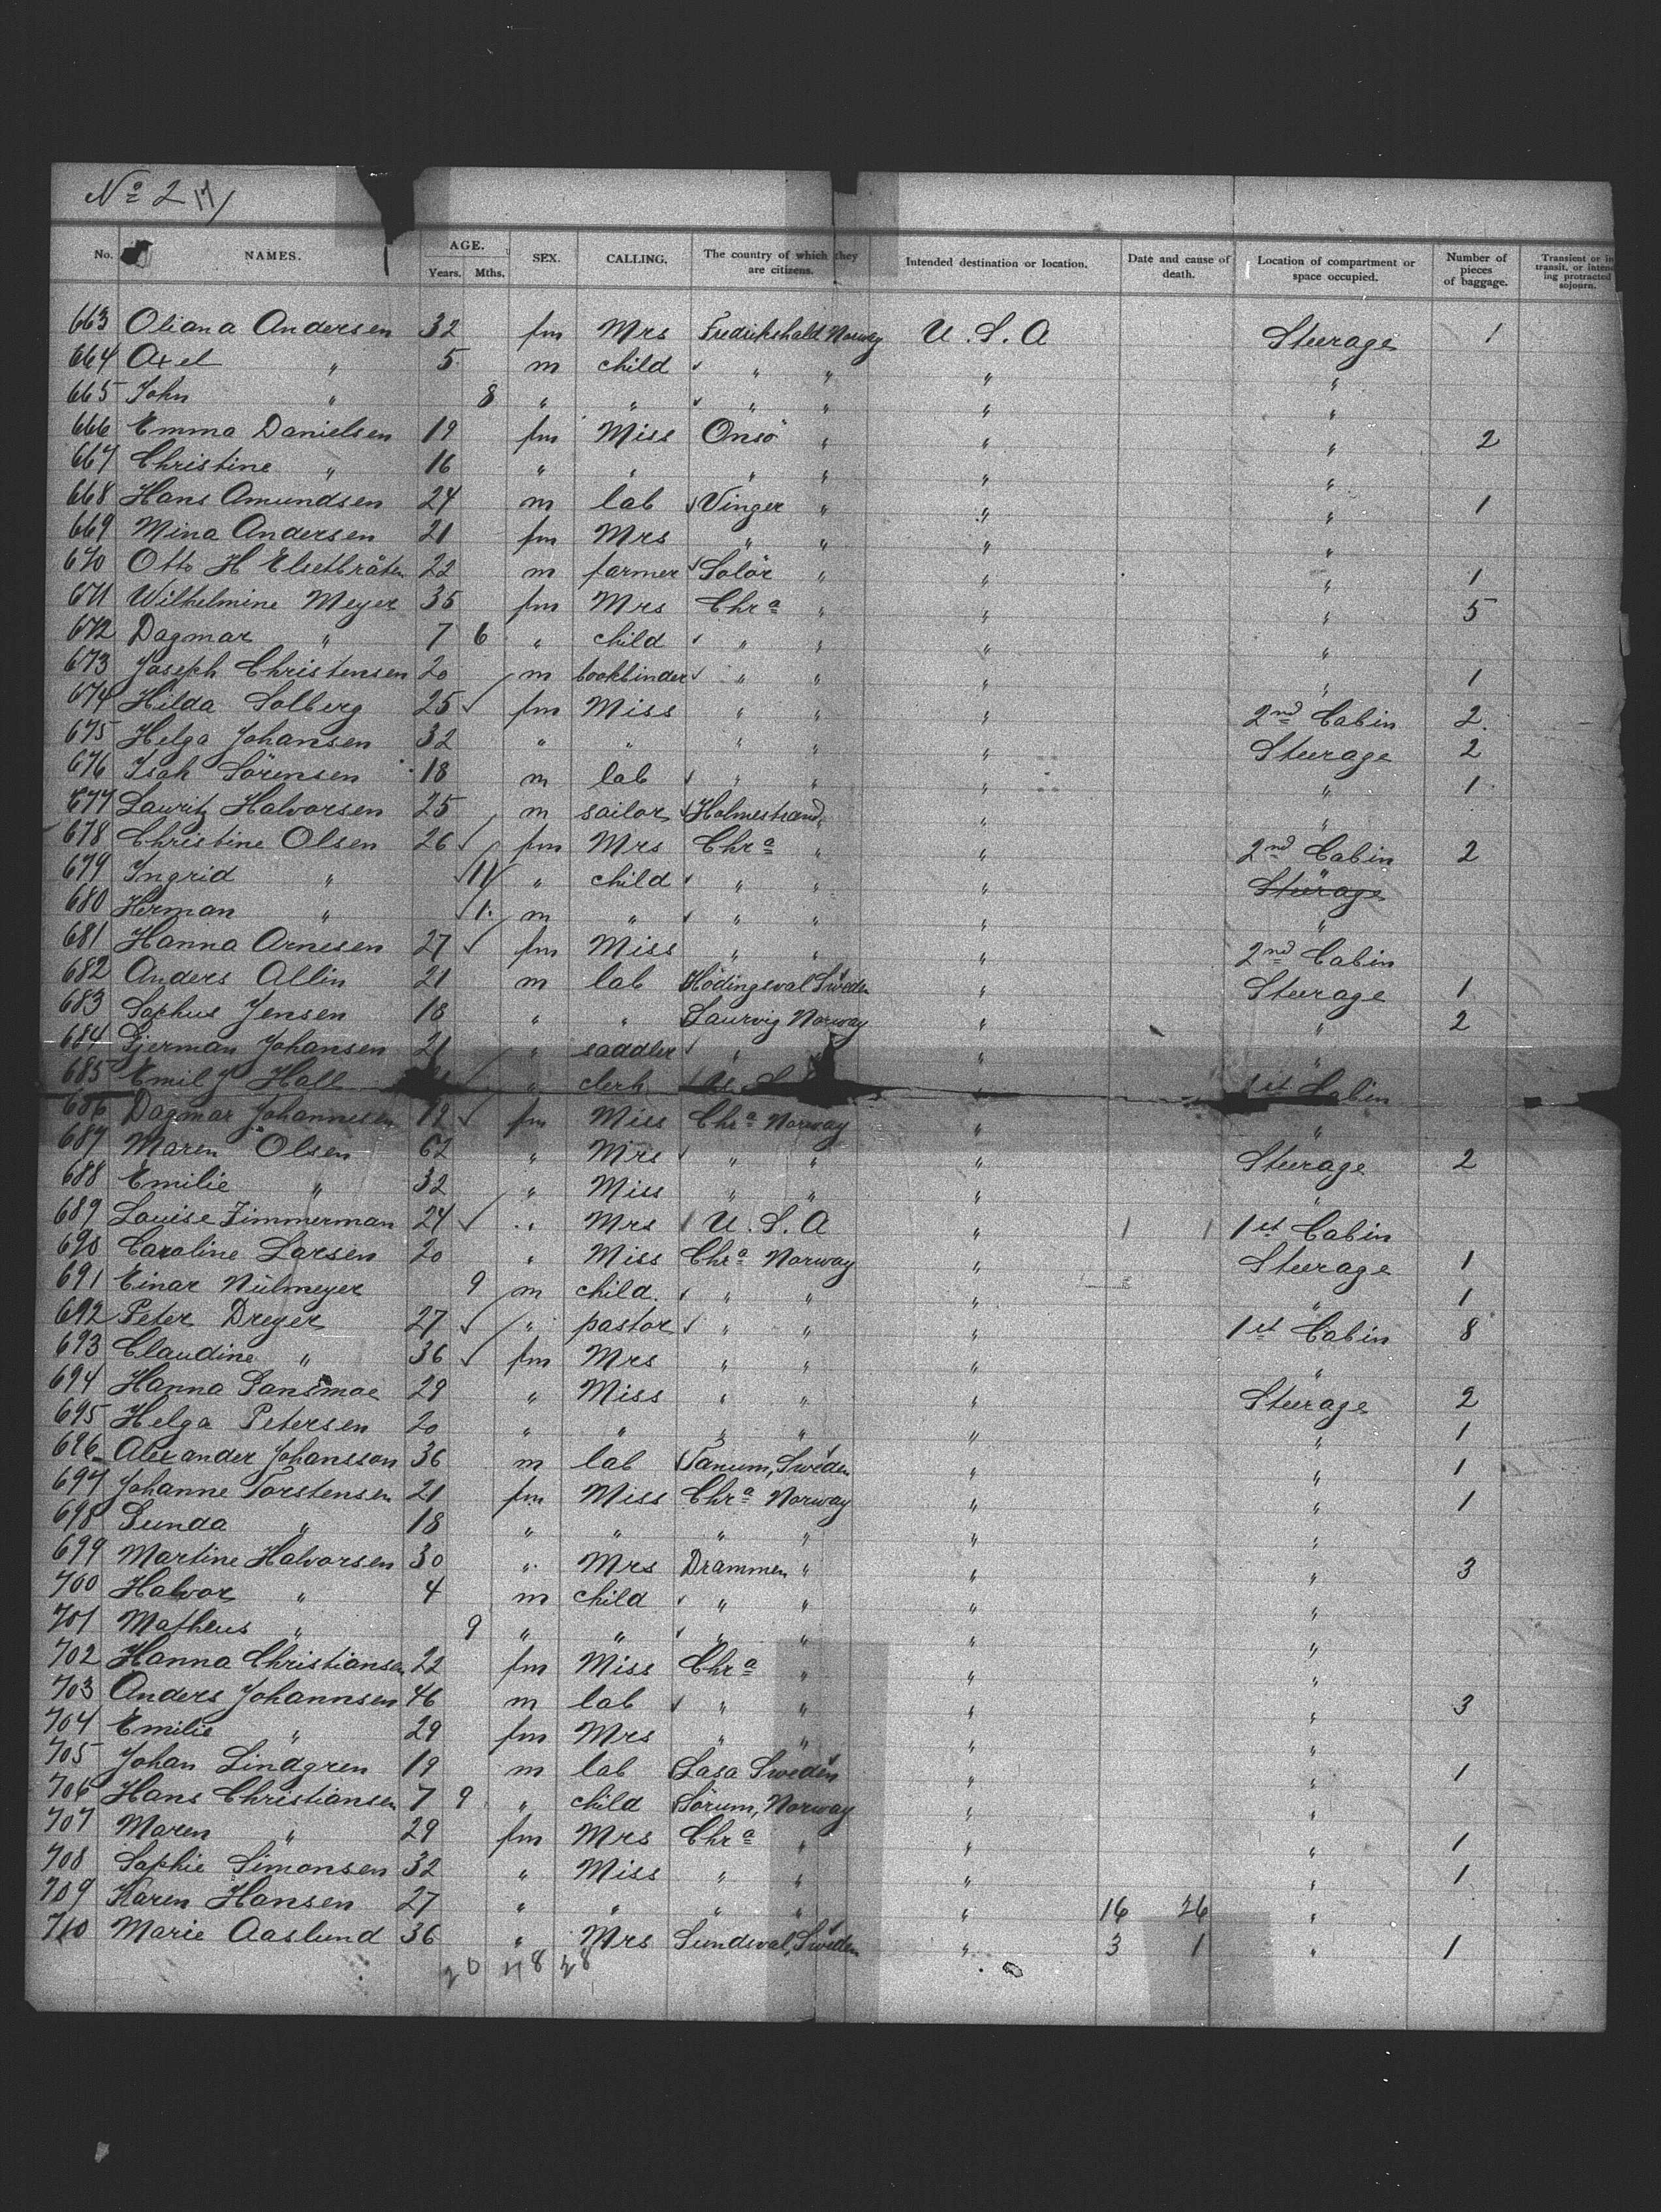 No 2 17/
No. NAMES. AGE. Years. Mths. SEX. CALLING. The country of which they are citizens. Intended destination or location. Date and cause of death. Location of compartment or space occupied. Number of pieces of baggage. Transient or in transit, or intending protracted sojourn.
663 Oliana Andersen 32 fm Mrs Fredrikshald Norway U.S.A Steerage 1
664 Axel " 5 m child " " " "
665 John " 8 " " " " " "
666 Emma Danielsen 19 fm Miss Onsö " " " 2
667 Christine " 16 " " " " " "
668 Hans Amundsen 24 m lab Vinger " " " 1
669 Mina Andersen 21 fm Mrs " " " "
670 Otto H Elsetbråten 22 m farmer Solör " " " 1
671 Wilhelmine Meyer 35 fm Mrs Chra " " " 5
672 Dagmar " 7 6 " child " " " "
673 Joseph Christensen 20 m bookbinder " " " " 1
674 Hilda Solberg 25 fm Miss " " " 2nd Cabin 2
675 Helga Johansen 32 " " " " " Steerage 2
676 Isak Sörensen 18 m lab " " " " 1
677 Lauritz Halvorsen 25 m sailor Holmestrand " " "
678 Christine Olsen 26 fm Mrs Chra " " 2nd Cabin 2
679 Ingrid " 11 " child " " " Steerage
680 Herman " 1 m " " " " "
681 Hanna Arnesen 27 fm Miss " " " 2nd Cabin
682 Anders Allin 21 m lab Hödingsval Sweden " Steerage 1
683 Sophus Jensen 18 " " Laurvig Norway " " 2
684 Gjerman Johansen 21 " saddler " " " "
685 Emil J Hall " clerk " 1st Cabin
686 Dagmar Johannesen 12 fm Miss Chra Norway " "
687 Maren Olsen 62 " Mrs " " " Steerage 2
688 Emilie " 32 " Miss " " " "
689 Louise Zimmerman 24 " Mrs U.S.A " 1 1 1st Cabin
690 Caroline Larsen 20 " Miss Chra Norway " Steerage 1
691 Einar Nülmeyer 9 m child " " " " 1
692 Peter Dreyer 27 " pastor " " " 1st Cabin 8
693 Claudine " 36 fm Mrs " " " "
694 Hanna Gansmoe 29 " Miss " " " Steerage 2
695 Helga Petersen 20 " " " " " " 1
696 Alexander Johansson 36 m lab Tanum, Sweden " " 1
697 Johanne Torstensen 21 fm Miss Chra Norway " " 1
698 Gunda " 18 " " " " " "
699 Martine Halvorsen 30 " Mrs Drammen " " " 3
700 Halvor " 4 m child " " " "
701 Matheus " 9 " " " " " "
702 Hanna Christiansen 22 fm Miss Chra " " "
703 Anders Johannsen 46 m lab " " " " 3
704 Emilie " 29 fm Mrs " " " "
705 Johan Lindgren 19 m lab Sasa Sweden " " 1
706 Hans Christiansen 7 9 " child Sörum, Norway " "
707 Maren " 29 fm Mrs Chra " " " 1
708 Sophie Simonsen 32 " Miss " " " " 1
709 Karen Hansen 27 " " " " " 16 26 "
710 Marie Aaslund 36 " Mrs Sundsval, Sweden " 3 1 " 1